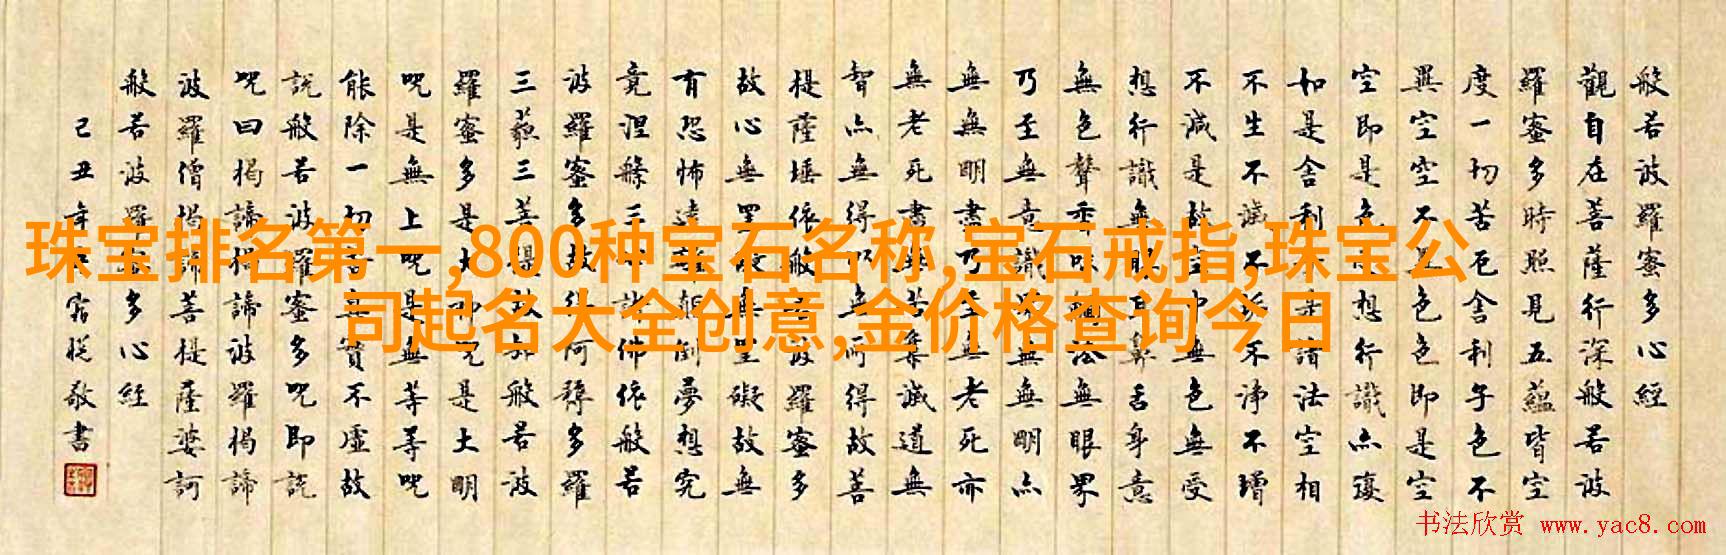 般若波羅蜜多心經
觀自在菩薩行深般若波
羅蜜多時照見五蘊皆空
度一切苦厄舍利子色不
異空空不異色色即是空
空即是色受想行識亦復
如是舍利子是諸法空相
不生不滅不垢不淨不增
不減是故空中無色無受
想行識無眼耳鼻舌身意
無色聲香味觸法無眼界
乃至無意識界無無明亦
無無明盡乃至無老死亦
無老死盡無苦集滅道無
智亦無得以無所得故菩
提薩埵依般若波羅蜜多
故心無罣礙無罣礙故無
有恐怖遠離顛倒夢想究
竟涅槃三世諸佛依般若
波羅蜜多故得阿耨多羅
三藐三菩提故知般若波
羅蜜多是大神咒是大明
咒是無上咒是無等等咒
能除一切苦真實不虛故
說般若波羅蜜多咒即說
咒曰揭諦揭諦波羅揭諦
波羅僧揭諦菩提薩婆訶
般若波羅蜜多心經
己丑年敬書
珠宝排名第一,800种宝石名称,宝石戒指,珠宝公
司起名大全创意,金价格查询今日
书法欣赏 www.yac8.com